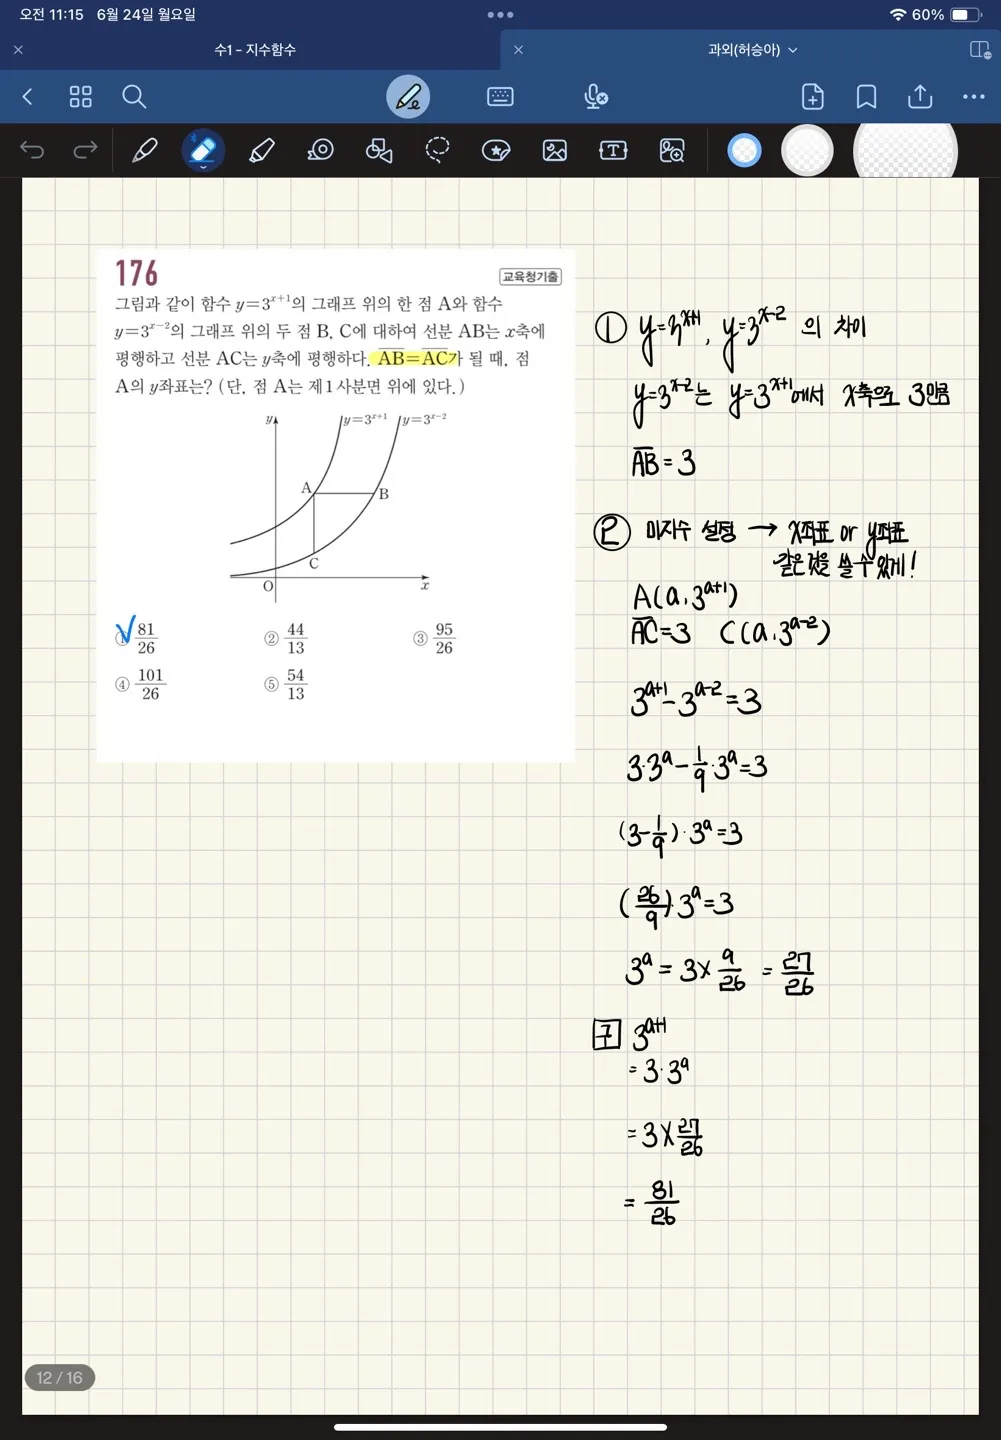 오전 11:15 6월 24일 월요일
60%
수1 - 지수함수
과외(허승아)
176
교육청기출
그림과 같이 함수 y=3^{x+1}의 그래프 위의 한 점 A와 함수
y=3^{x-2}의 그래프 위의 두 점 B, C에 대하여 선분 AB는 x축에
평행하고 선분 AC는 y축에 평행하다. \overline{AB}=\overline{AC}가 될 때, 점
A의 y좌표는? (단, 점 A는 제1사분면 위에 있다.)
y
y=3^{x+1}
y=3^{x-2}
A
B
C
O
x
① 81/26
② 44/13
③ 95/26
④ 101/26
⑤ 54/13
① y=3^{x+1}, y=3^{x-2} 의 차이
y=3^{x-2}는 y=3^{x+1}에서 x축으로 3만큼
\overline{AB}=3
② 미지수 설정 → x좌표 or y좌표
같은것을 쓸수있게!
A(a, 3^{a+1})
\overline{AC}=3 C(a, 3^{a-2})
3^{a+1}-3^{a-2}=3
3·3^a-1/9·3^a=3
(3-1/9)·3^a=3
(26/9)·3^a=3
3^a=3×9/26=27/26
구 3^{a+1}
=3·3^a
=3×27/26
=81/26
12 / 16